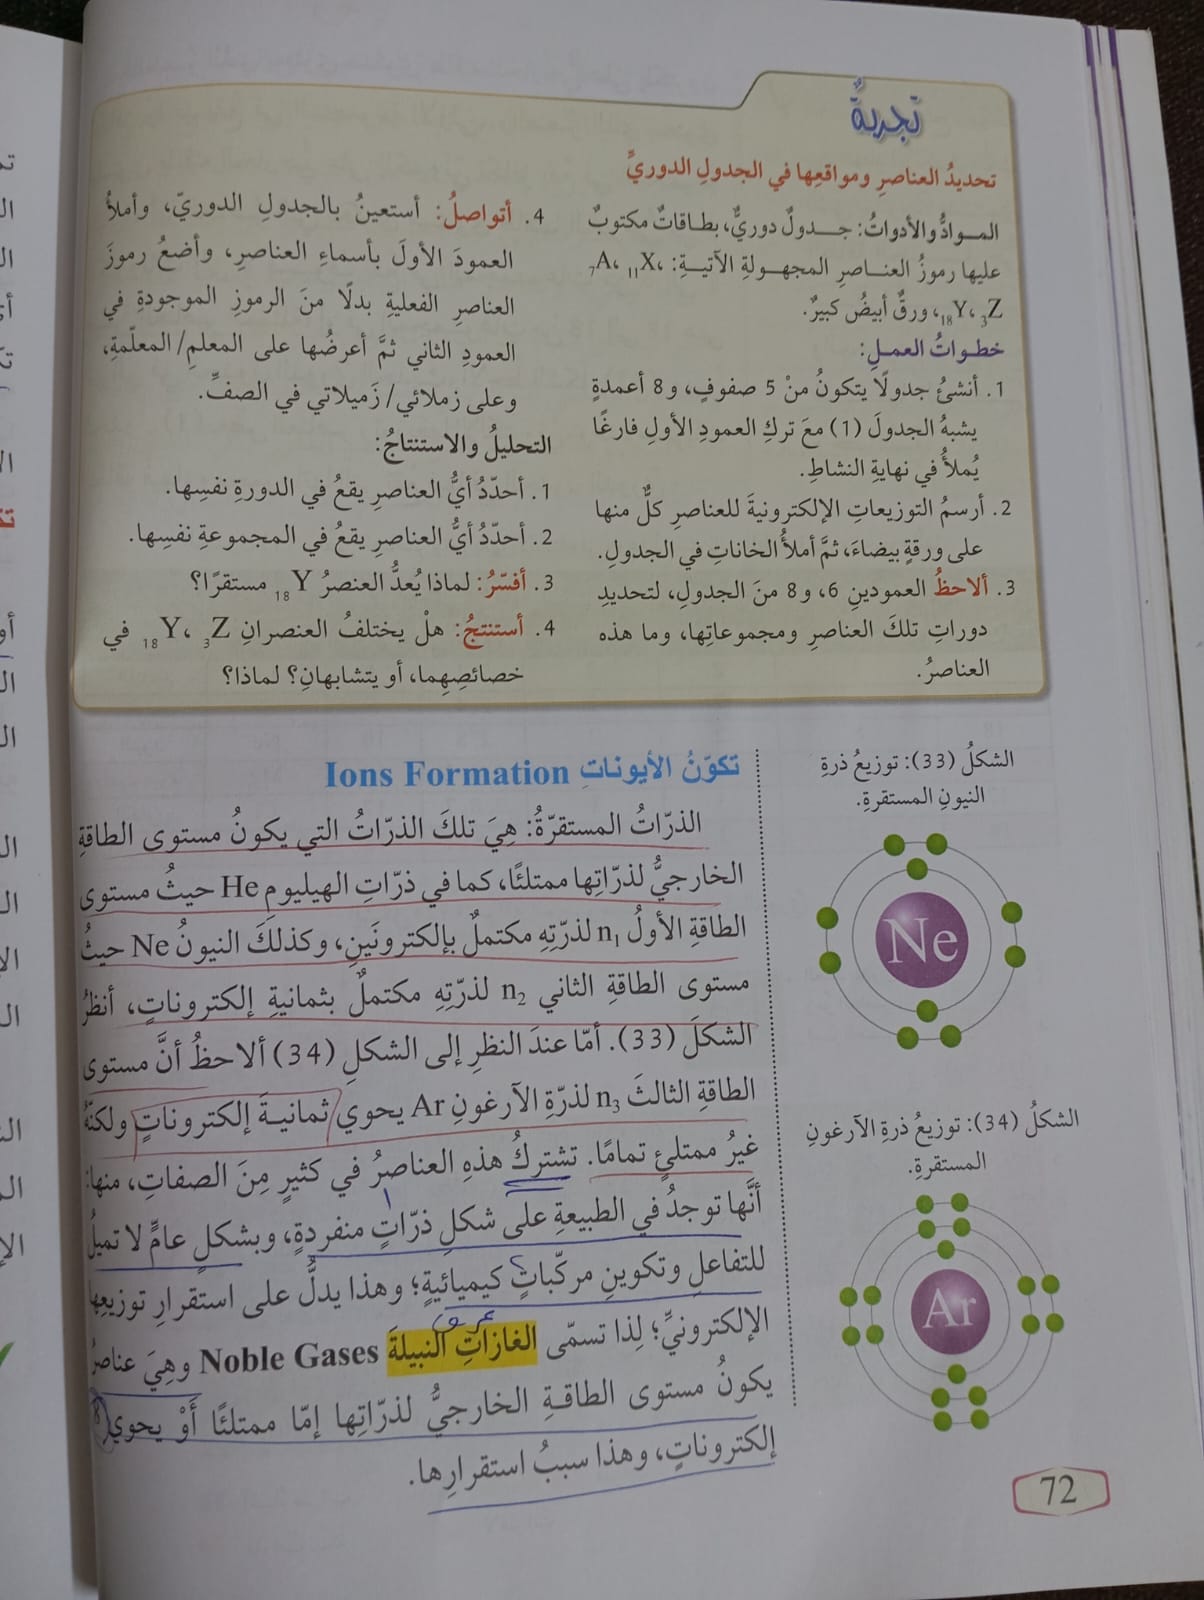 تجربةٌ
تحديدُ العناصرِ ومواقعِها في الجدولِ الدوريِّ
المـوادُّ والأدواتُ: جـدولٌ دوريٌّ، بطـاقاتٌ مكتوبٌ
عليها رموزُ العنـاصرِ المجهـولةِ الآتيـةِ: ₇A، ₁₁X،
₁₈Y، ₃Z، ورقٌ أبيضُ كبيرٌ.
خطـواتُ العمـلِ:
1. أنشئُ جدولًا يتكونُ منْ 5 صفوفٍ، و8 أعمدةٍ
يشبهُ الجدولَ (1) معَ تركِ العمودِ الأولِ فارغًا
يُملأُ في نهايةِ النشاطِ.
2. أرسمُ التوزيعاتِ الإلكترونيةَ للعناصرِ كلٌّ منها
على ورقةٍ بيضاءَ، ثمَّ أملأُ الخاناتِ في الجدولِ.
3. ألاحظُ العمودينِ 6، و8 منَ الجدولِ، لتحديدِ
دوراتِ تلكَ العناصرِ ومجموعاتِها، وما هذه
العناصرُ.
4. أتواصلُ: أستعينُ بالجدولِ الدوريّ، وأملأُ
العمودَ الأولَ بأسماءِ العناصرِ، وأضعُ رموزَ
العناصرِ الفعليةِ بدلًا منَ الرموزِ الموجودةِ في
العمودِ الثاني ثمَّ أعرضُها على المعلمِ/ المعلّمةِ،
وعلى زملائي/ زَميلاتي في الصفِّ.
التحليلُ والاستنتاجُ:
1. أحدّدُ أيُّ العناصرِ يقعُ في الدورةِ نفسِها.
2. أحدّدُ أيُّ العناصرِ يقعُ في المجموعةِ نفسِها.
3. أفسّرُ: لماذا يُعدُّ العنصرُ ₁₈Y مستقرًا؟
4. أستنتجُ: هلْ يختلفُ العنصرانِ ₁₈Y، ₃Z في
خصائصِهِما، أو يتشابهانِ؟ لماذا؟
تكوّنُ الأيوناتِ Ions Formation
الذرّاتُ المستقرّةُ: هِيَ تلكَ الذرّاتُ التي يكونُ مستوى الطاقةِ
الخارجيُّ لذرّاتِها ممتلئًا، كما في ذرّاتِ الهيليومِ He حيثُ مستوى
الطاقةِ الأولُ n₁ لذرّتِهِ مكتملٌ بإلكترونَينِ، وكذلكَ النيونُ Ne حيثُ
مستوى الطاقةِ الثاني n₂ لذرّتِهِ مكتملٌ بثمانيةِ إلكتروناتٍ، أنظرُ
الشكلَ (33). أمّا عندَ النظرِ إلى الشكلِ (34) ألاحظُ أنَّ مستوى
الطاقةِ الثالثَ n₃ لذرّةِ الآرغونِ Ar يحوي ثمانيـةَ إلكتروناتٍ ولكنّهُ
غيرُ ممتلئٍ تمامًا. تشتركُ هذهِ العناصرُ في كثيرٍ مِنَ الصفاتِ، منها:
أنَّها توجدُ في الطبيعةِ على شكلِ ذرّاتٍ منفردةٍ، وبشكلٍ عامٍّ لا تميلُ
للتفاعلِ وتكوينِ مركّباتٍ كيميائيةٍ؛ وهذا يدلُّ على استقرارِ توزيعِها
الإلكترونيِّ؛ لِذا تسمّى الغازاتِ النبيلةَ Noble Gases وهِيَ عناصرُ
يكونُ مستوى الطاقـةِ الخارجيُّ لذرّاتِها إمّا ممتلئًا أَوْ يحوي 8
إلكتروناتٍ، وهذا سببُ استقرارِها.
الشكلُ (33): توزيعُ ذرةِ
النيونِ المستقرةِ.
Ne
الشكلُ (34): توزيعُ ذرةِ الآرغونِ
المستقرةِ.
Ar
72